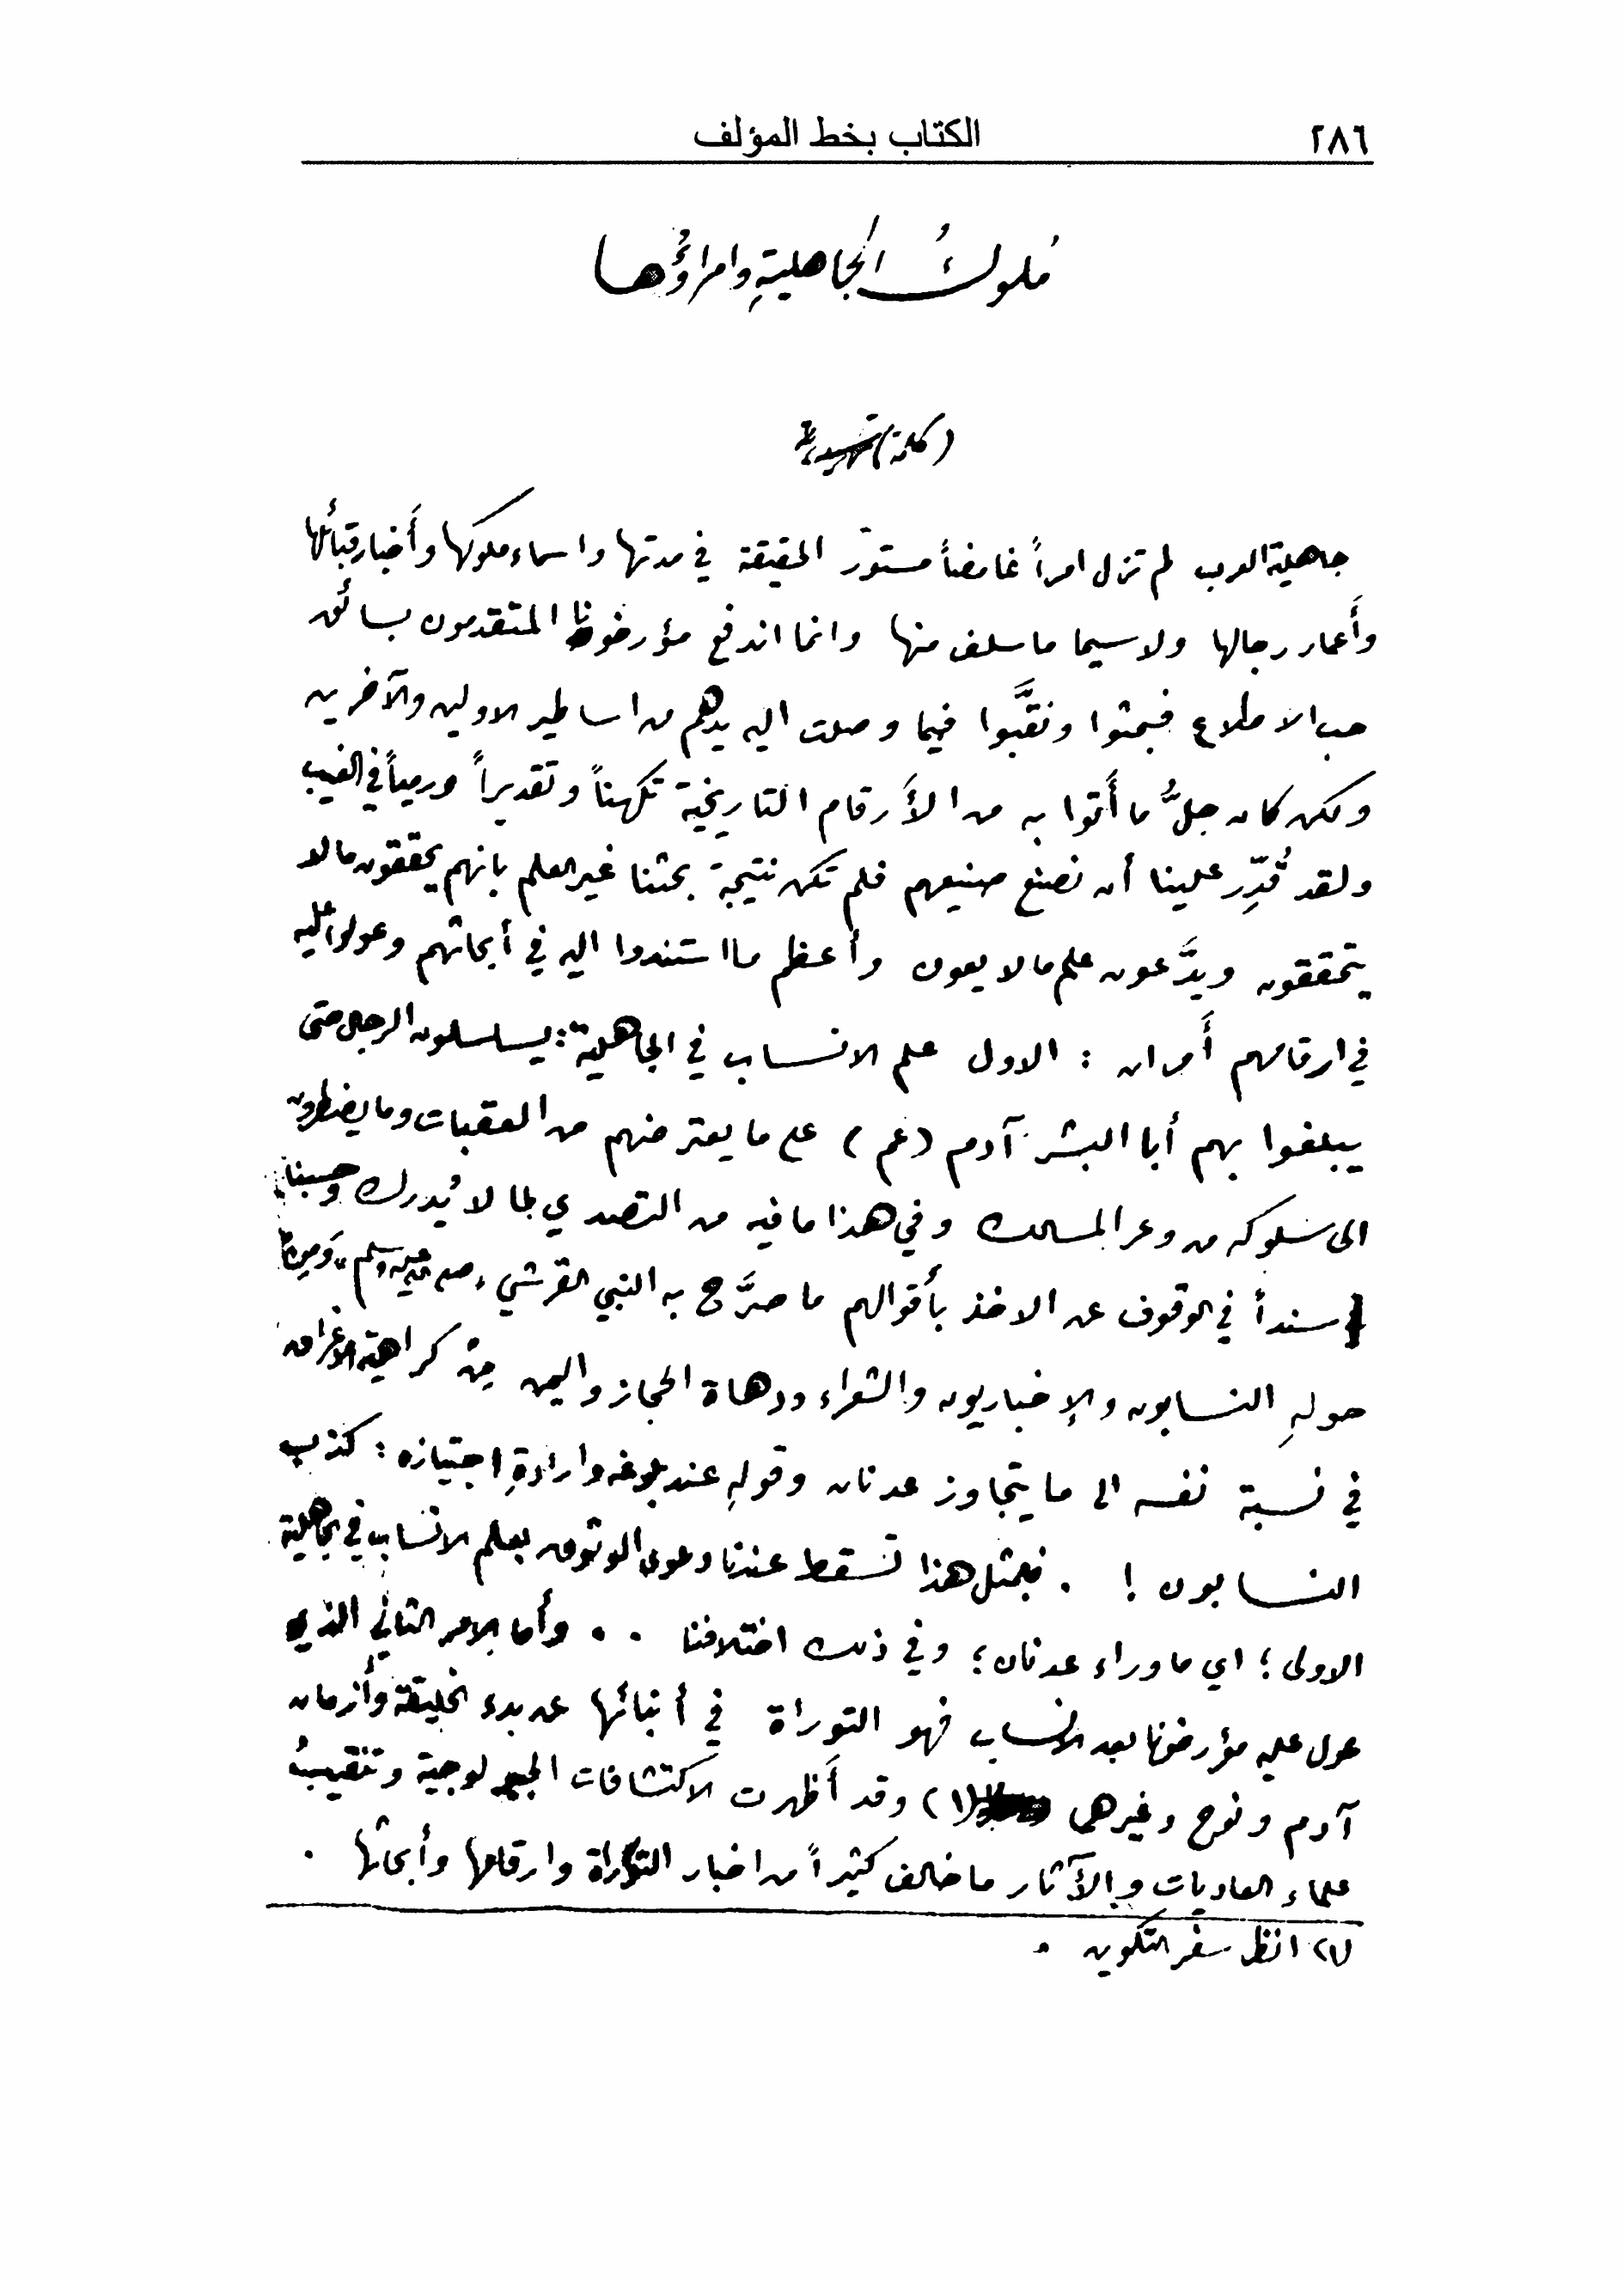 ٢٨٦
الكتاب بخط المؤلف
مُلوكُ الجاهليةِ وامراؤُها
(كلمة) تمهيدية
جاهلية العرب لم تزل امراً غامضاً مستورَ الحقيقة في مدتها واسماء ملوكها وأَخبار قبائلها
وأَعمار رجالها ولاسيما ما سلف منها وانما اندفع مؤرخونا المتقدمون بسائق
حب الاطلاع فبحثوا ونقَّبوا فيما وصلت اليه يدهم من اساطير الاولين والآخرين
ولكن كان جلُّ ما أَتوا به من الأَرقام التاريخية تكهناً وتقديراً ورمياً في الغيب
ولقد قُدِّر علينا أن نصنع صنيعهم فلم تكن نتيجة بحثنا غير العلم بانهم يحققون ما لا
يتحققون ويدَّعون علم ما لا يعون وأعظم ما استندوا اليه في أبحاثهم وعولوا عليه
في ارقامهم أَمران : الاول علم الانساب في الجاهلية : يسلسلون الرجال حتى
يبلغوا بهم أبا البشر آدم (عم) على ما يعترضهم من العقبات وما يضطرون
الى سلوكه من وعر المسالك وفي هذا ما فيه من التصدي لما لا يُدرك وحسبنا
سنداً في الوقوف عن الاخذ بأقوالهم ما صرَّح به النبي القرشي صلى الله عليه وسلم
حولهِ النسابون والإخباريون والشعراء ودهاة الحجاز واليمن مِن كراهية الاغراق
في نسبة نفسه الى ما يتجاوز عدنان وقولهِ عند بلوغه وارادةِ اجتيازه : كذب
النسابون ! . فبمثل هذا تسقط عندنا دعوى الوثوق بعلم الانساب في الجاهلية
الاولى ؛ اي ما وراء عدنان ؛ وفي ذلك اختلافنا . . وأما الامر الثاني الذي
عول عليه مؤرخونا بعد الانساب فهو التوراة في أنبائها عن بدء الخليقة وأزمان
آدم ونوح وغيرهما (١) وقد أَظهرت الاكتشافات الجيولوجية وتنقيبُ
علماء العاديات والآثار ما خالف كثيراً من اخبار التوراة وارقامها وأبحاثها .
(١) انظر سفر التكوين .